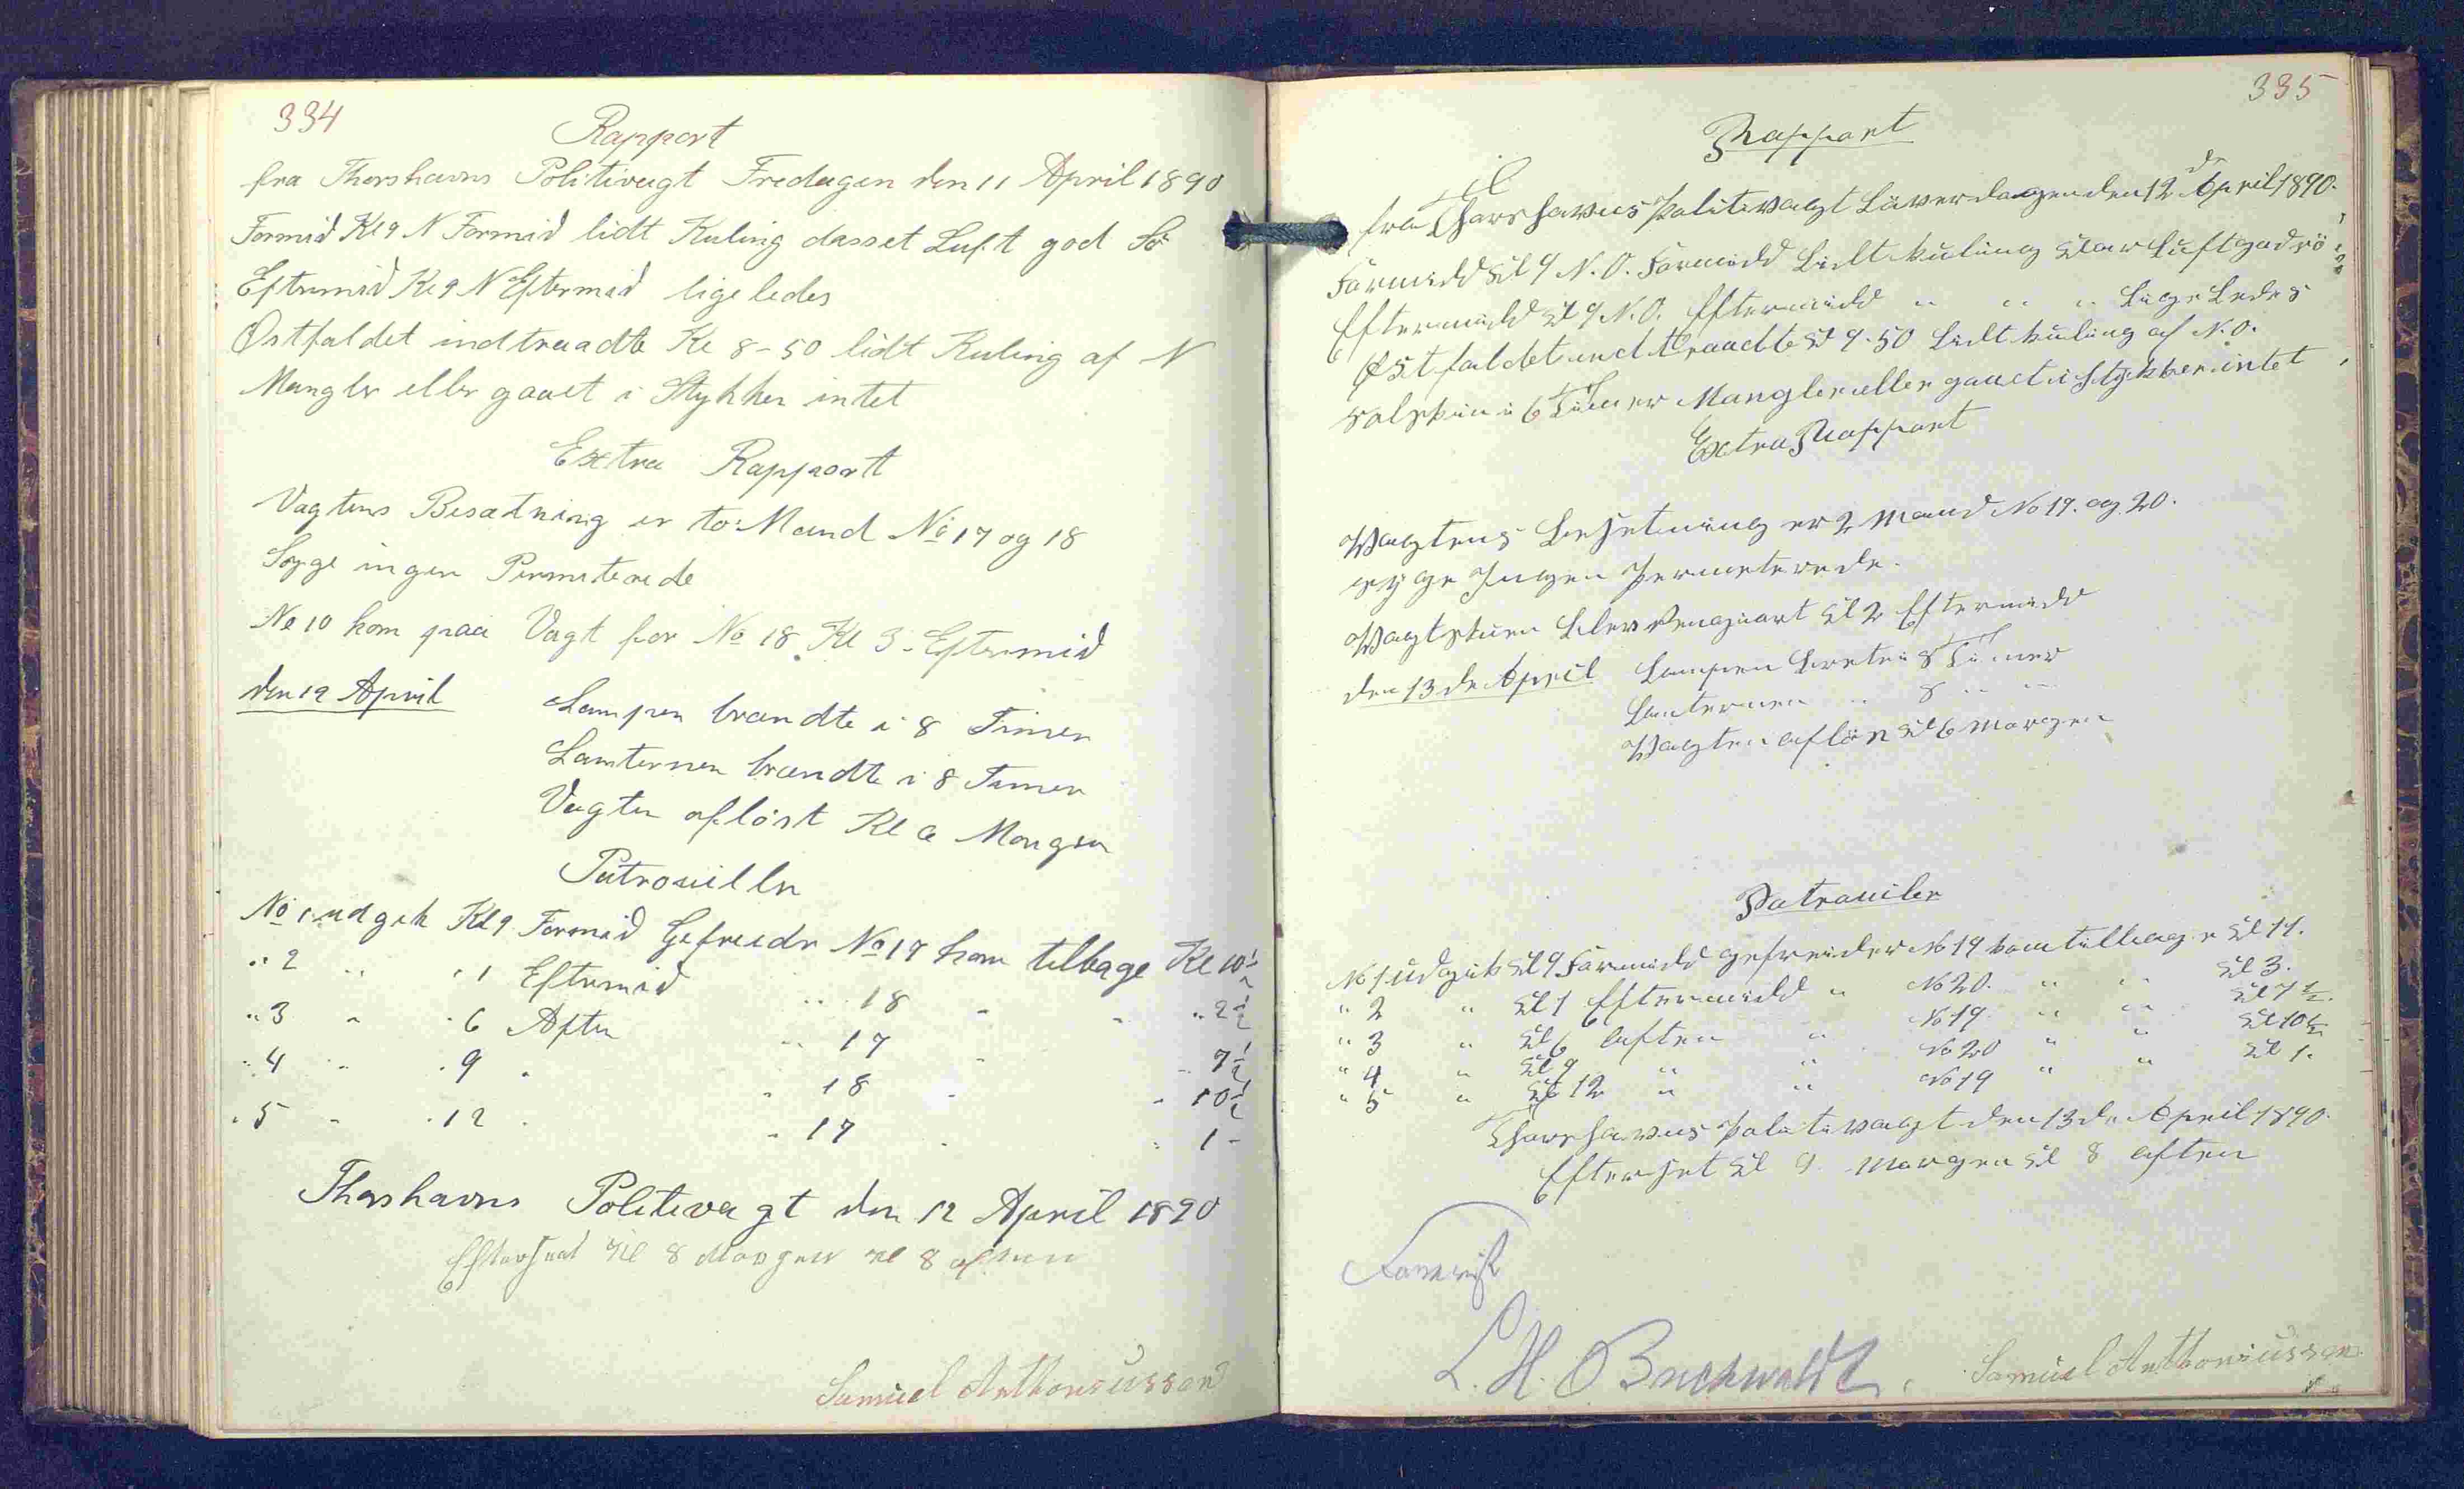 334
Rapport
fra Thorshavns Politivagt Fredagen den 11 April 1890
Formid Kl 9 N Formid lidt Kuling dasset Luft god Sö
Eftermid Kl 9 N Eftermid ligeledes
Østfaldet indtraadte Kl 8-50 lidt Kuling af N
Mangler eller gaaet i Stykker intet
Extra Rapport
Vagtens Besætning er to Mand No 17 og 18
Syge ingen Permiterede
No 10 kom paa Vagt for No 18 Kl 3 Eftermid
den 12 April Lampen brændte i 8 Timer
Lanternen brændte i 8 Timer
Vagten aflöst Kl 6 Morgen
Patrouiller
No 1 udgik Kl 9 Formid Gefreider No 17 kom tilbage Kl 10½
" 2 " " 1 Eftermid " 18 " " " 2½
" 3 " " 6 Aften " 17 " " 7½
" 4 " " 9 " " 18 " " 10½
" 5 " " 12 " " 17 " " 1 -
Thorshavns Politivagt den 12 April 1890
Efterseet Kl 8 Morgen Kl 8 aften
Samuel Anthoniussen
335
Rapport
til
fra Thorshavns Politivagt Löverdagen den 12 de April 1890.
Formidd Kl 9 N.O. Formidd Lidt kuling klar Luft god sö
Eftermidd Kl 9 N.O. Eftermidd " " " Lige Ledes
Østfaldet indtraadte Kl 9-50 Lidt kuling af N.O.
solskin i 6 Timer Mangler eller gaaet i stykker intet
Extra Rapport
Wagtens Besetning er 2 Mand No 19. og 20.
syge Ingen Permeterede.
Wagtstuen blev Rengjort Kl 2 Eftermidd
den 13 de April Lampen brente i 8 Timer
Lanternen " 8 " "
Wagten aflöst Kl 6 Morgen
Patrouiler
No 1 udgik Kl 9 Formidd gefreider No 19 kom tilbage Kl 11.
" 2 " Kl 1 Eftermidd " No 20. " " Kl 3.
" 3 " Kl 6 aften " No 19 " " Kl 7½.
" 4 " Kl 9 " " No 20 " " Kl 10½
" 5 " Kl 12 " " No 19 " " Kl 1.
Thorshavns Politivagt den 13 de April 1890.
Efterset Kl 9 Morgen Kl 8 aften
L. H. Buchwaldt.
Samuel Anthoniussen